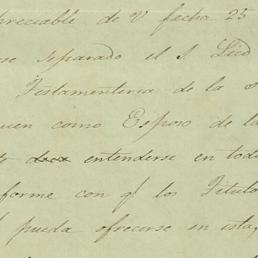 preciable de V fecha 25
se separado el S Lic
Testamenteria de la
quien como Esposo de la
entenderse en todo
forme con q! los Titulo
pueda ofrecerse en esta,